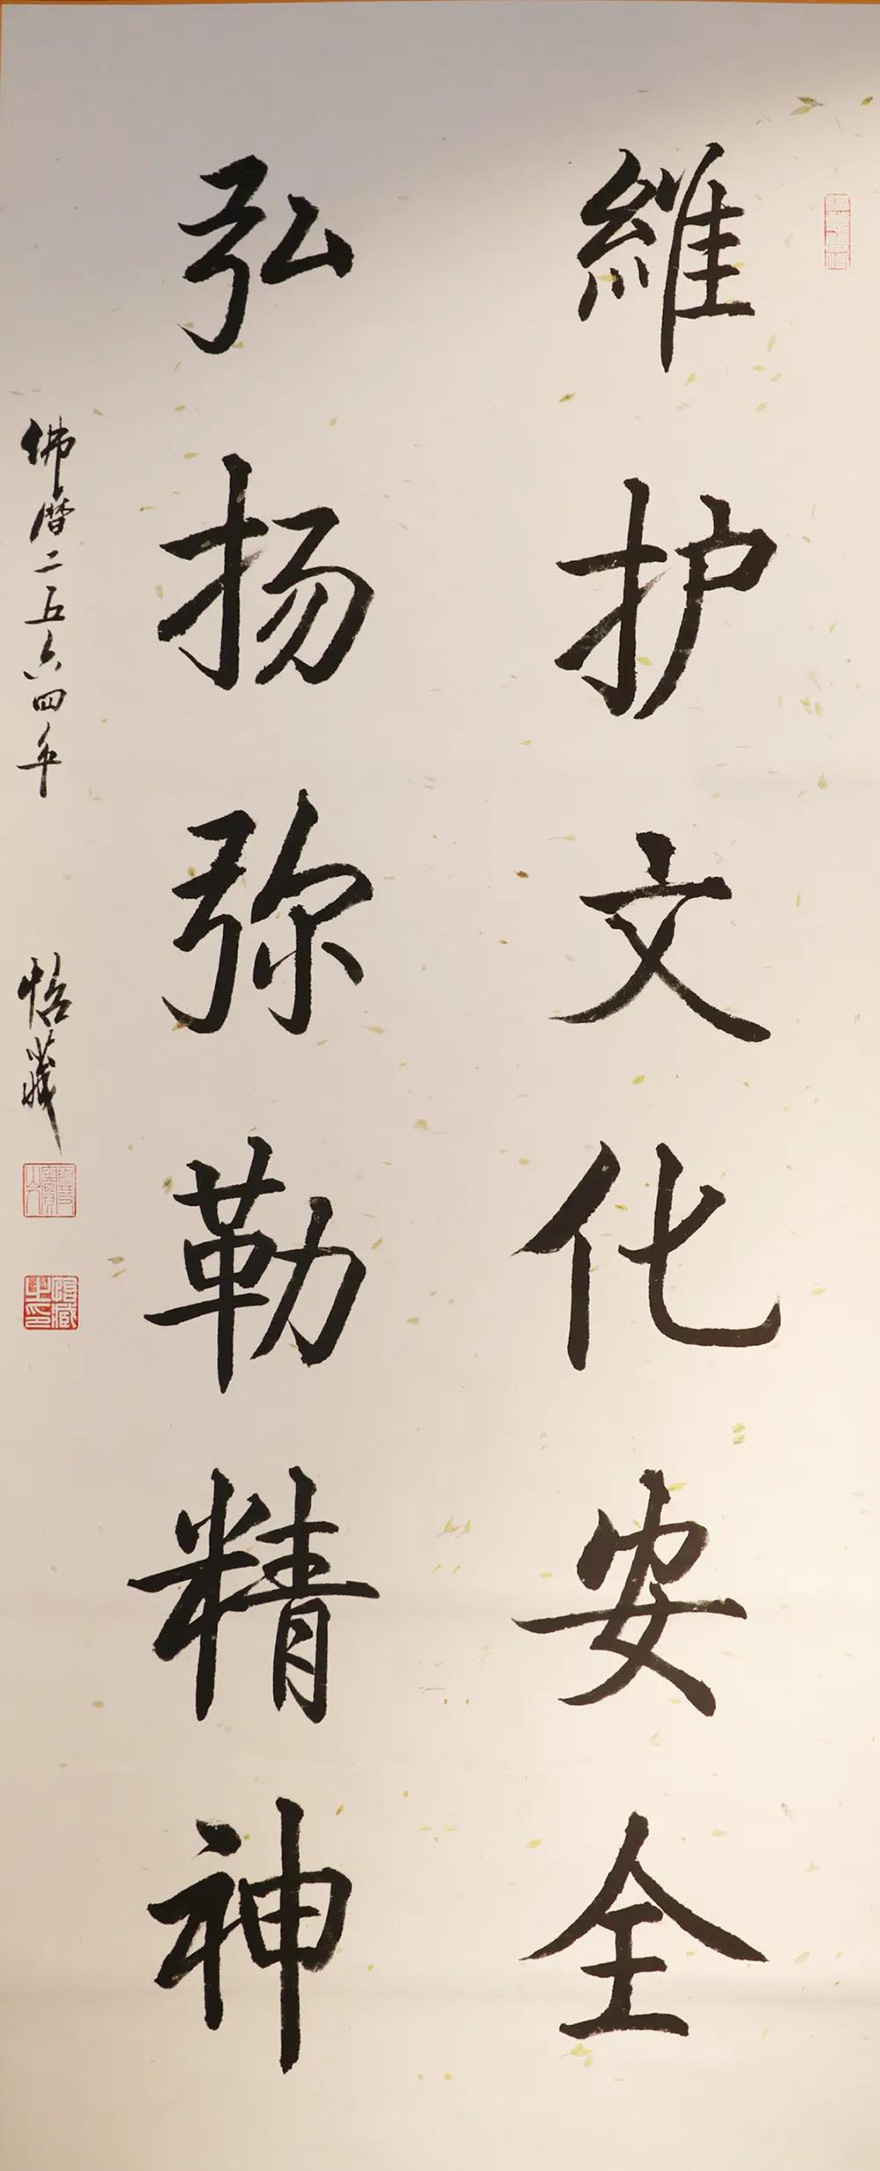 維护文化安全
弘扬弥勒精神
佛曆二五六四年
悟藏